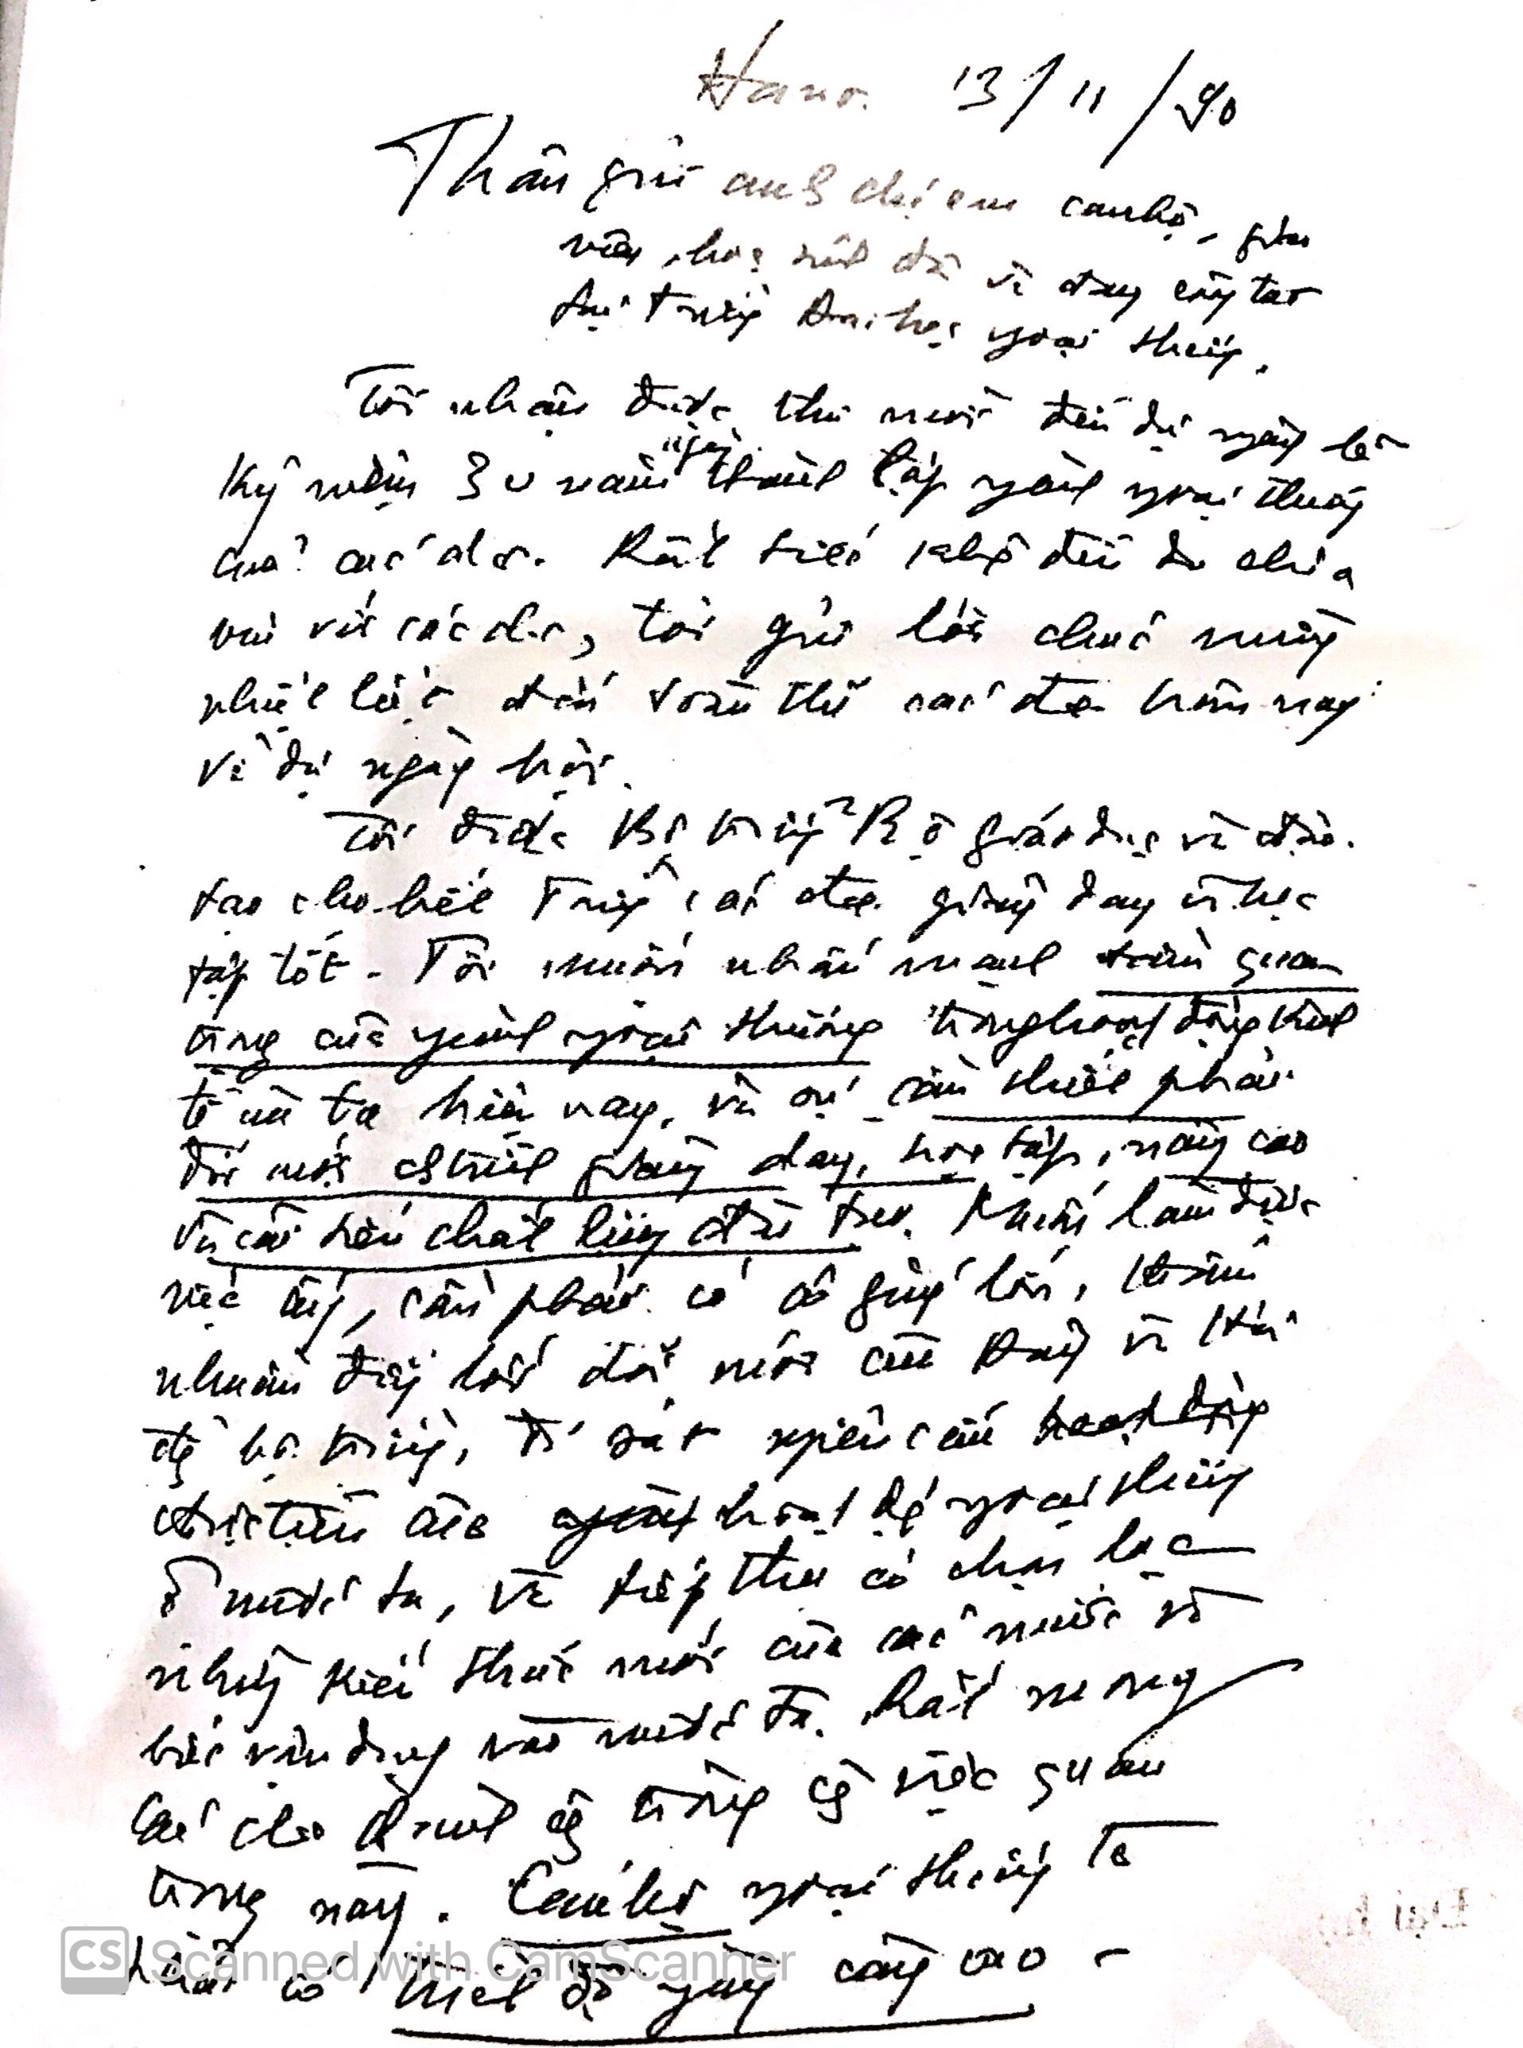 Hanoi 13/11/90
Thân gửi anh chị em cán bộ, giáo
viên, học sinh đã và đang công tác
tại trường Đại học ngoại thương.
Tôi nhận được thư mời đến dự ngày lễ
kỷ niệm 30 năm ngày thành lập ngành ngoại thương
của các đ/c. Rất tiếc không đến dự chia
vui với các đ/c, tôi gửi lời chúc mừng
nhiệt liệt đến toàn thể các đ/c hôm nay
về dự ngày hội.
Tôi được Bộ trưởng Bộ giáo dục và đào
tạo cho biết Trường các đ/c giảng dạy và học
tập tốt. Tôi muốn nhấn mạnh tầm quan
trọng của ngành ngoại thương trong hoạt động kinh
tế của ta hiện nay, và sự cần thiết phải
đổi mới chương trình giảng dạy, học tập, nâng cao
và cải tiến chất lượng đào tạo. Muốn làm được
việc ấy, cần phải có cố gắng lớn, thấm
nhuần đường lối đổi mới của Đảng và Hội
đồng bộ trưởng, đi sát nghiên cứu
thực tiễn của hoạt động ngoại thương
ở nước ta, và tiếp thu có chọn lọc
những kiến thức mới của các nước và
biết vận dụng vào nước ta. Rất mong
các đ/c thành công trong công việc quan
trọng này. Cán bộ ngoại thương ta
phải có trình độ ngày càng cao
CS Scanned with CamScanner